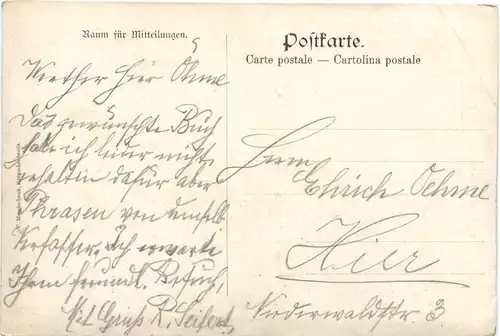 Raum für Mitteilungen.
Postkarte.
Carte postale — Cartolina postale
Werther Herr Öhme
Das gewünschte Buch
habe ich leider nicht
erhalten dafür aber
Phrasen von demselb.
Verfasser. Ich erwarte
Ihren freundl. Besuch,
Mit Gruß R. Seifert,
Herrn
Ehrich Oehme
Hier
Niederwaldstr. 3